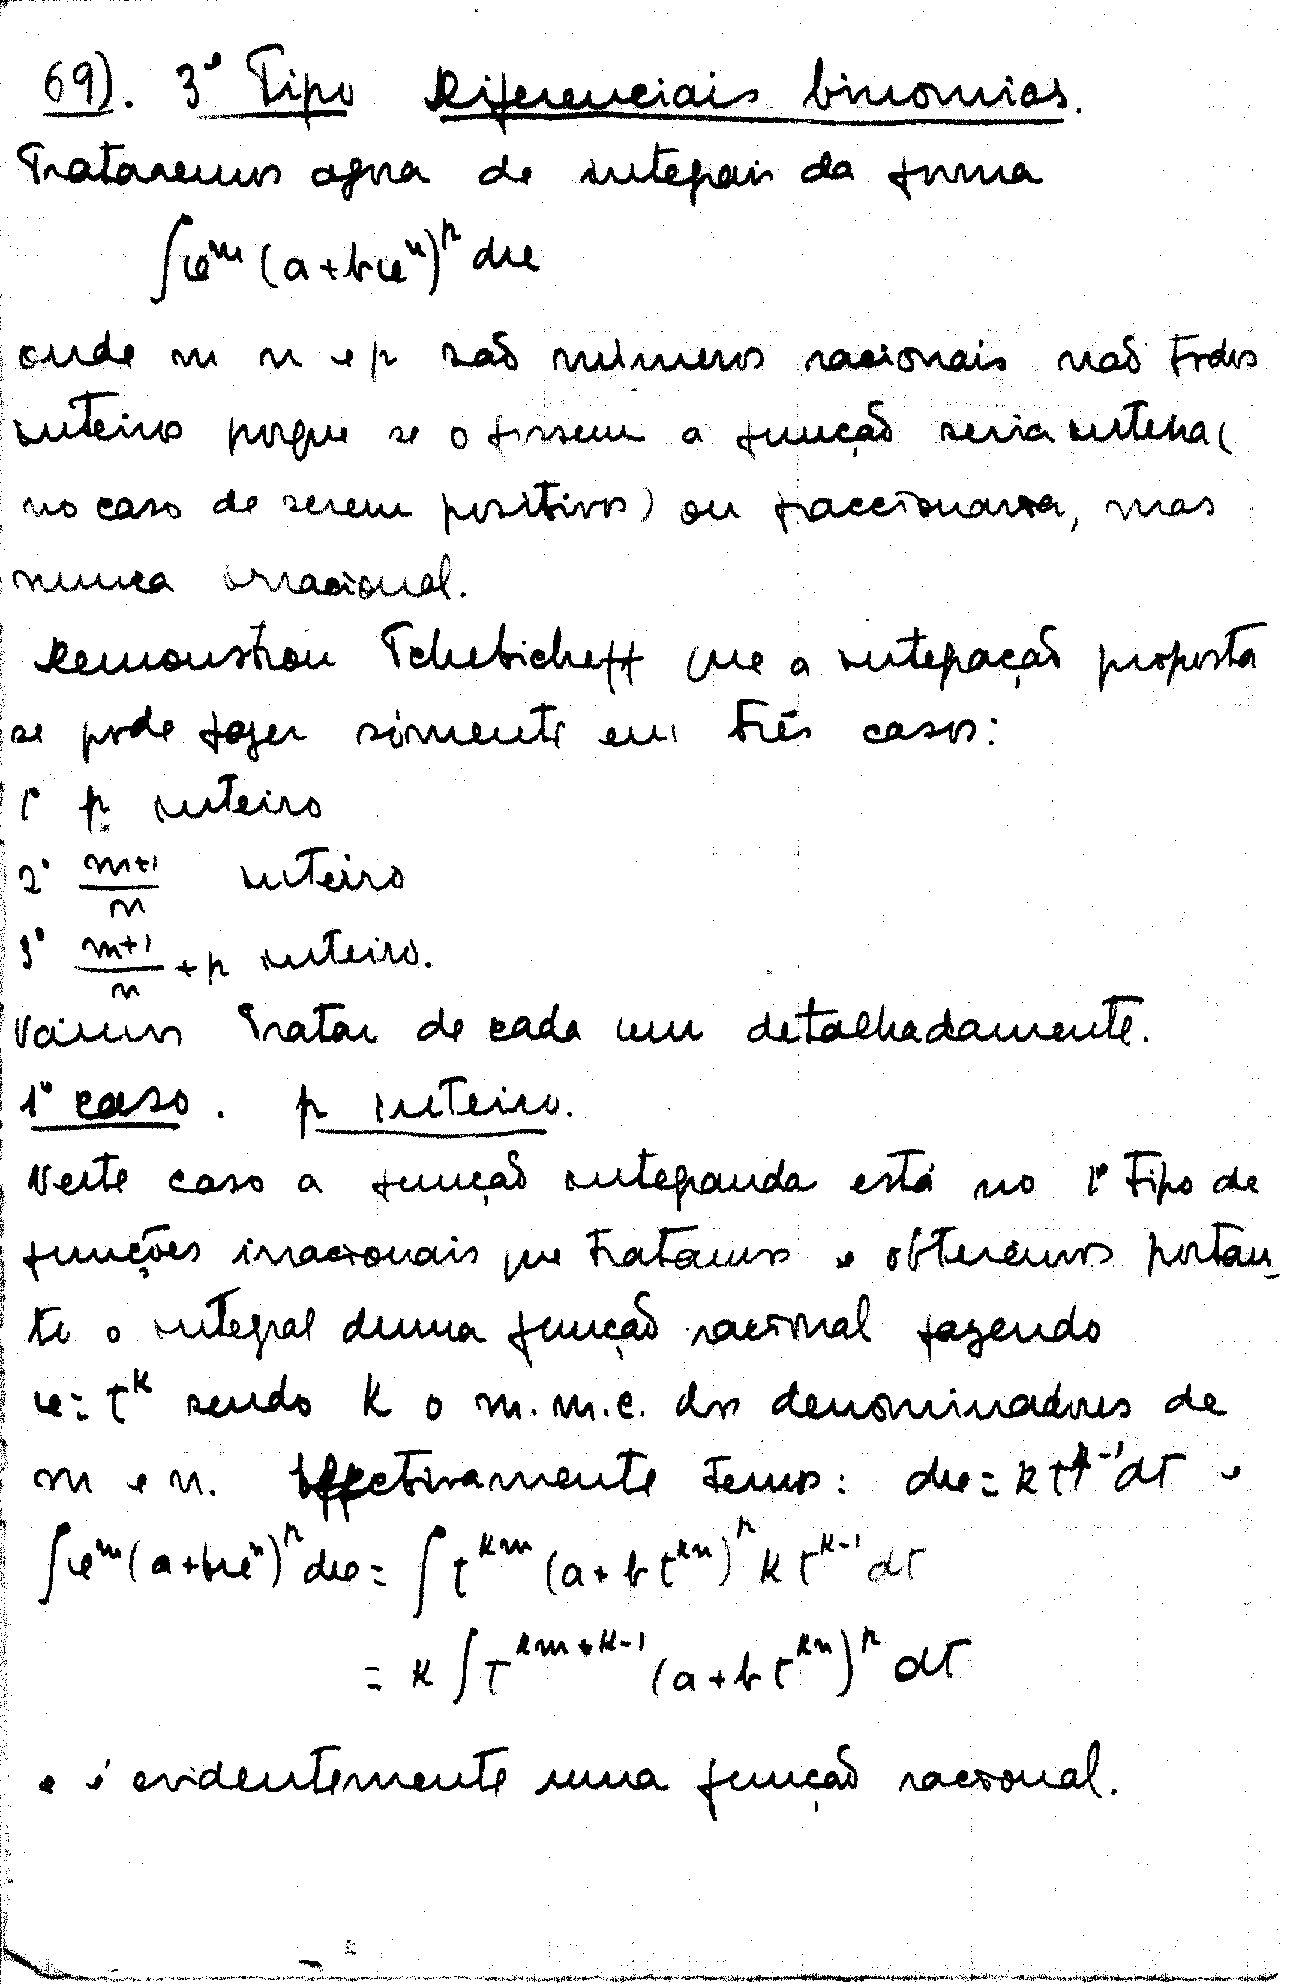 69). 3º Tipo Diferenciais binomias.
Trataremos agora de integrais da forma
∫x^m (a+bx^n)^p dx
onde m n e p são números racionais não todos
inteiros porque se o fossem a função seria inteira (
no caso de serem positivos) ou fraccionaria, mas
nunca irracional.
Demonstrou Tchebicheff que a integração proposta
se pode fazer sòmente em três casos:
1º p inteiro
2º (m+1)/n inteiro
3º (m+1)/n + p inteiro.
Vamos tratar de cada um detalhadamente.
1º caso. p inteiro.
Neste caso a função integranda está no 1º tipo de
funções irracionais que tratamos e obteremos portan-
to o integral duma função racional fazendo
x = t^k sendo k o m.m.c. dos denominadores de
m e n. Effectivamente temos: dx = k t^{k-1} dt e
∫x^m (a+bx^n)^p dx = ∫ t^{km} (a+b t^{kn})^p k t^{k-1} dt
= k ∫ t^{km+k-1} (a+b t^{kn})^p dt
e é evidentemente uma função racional.